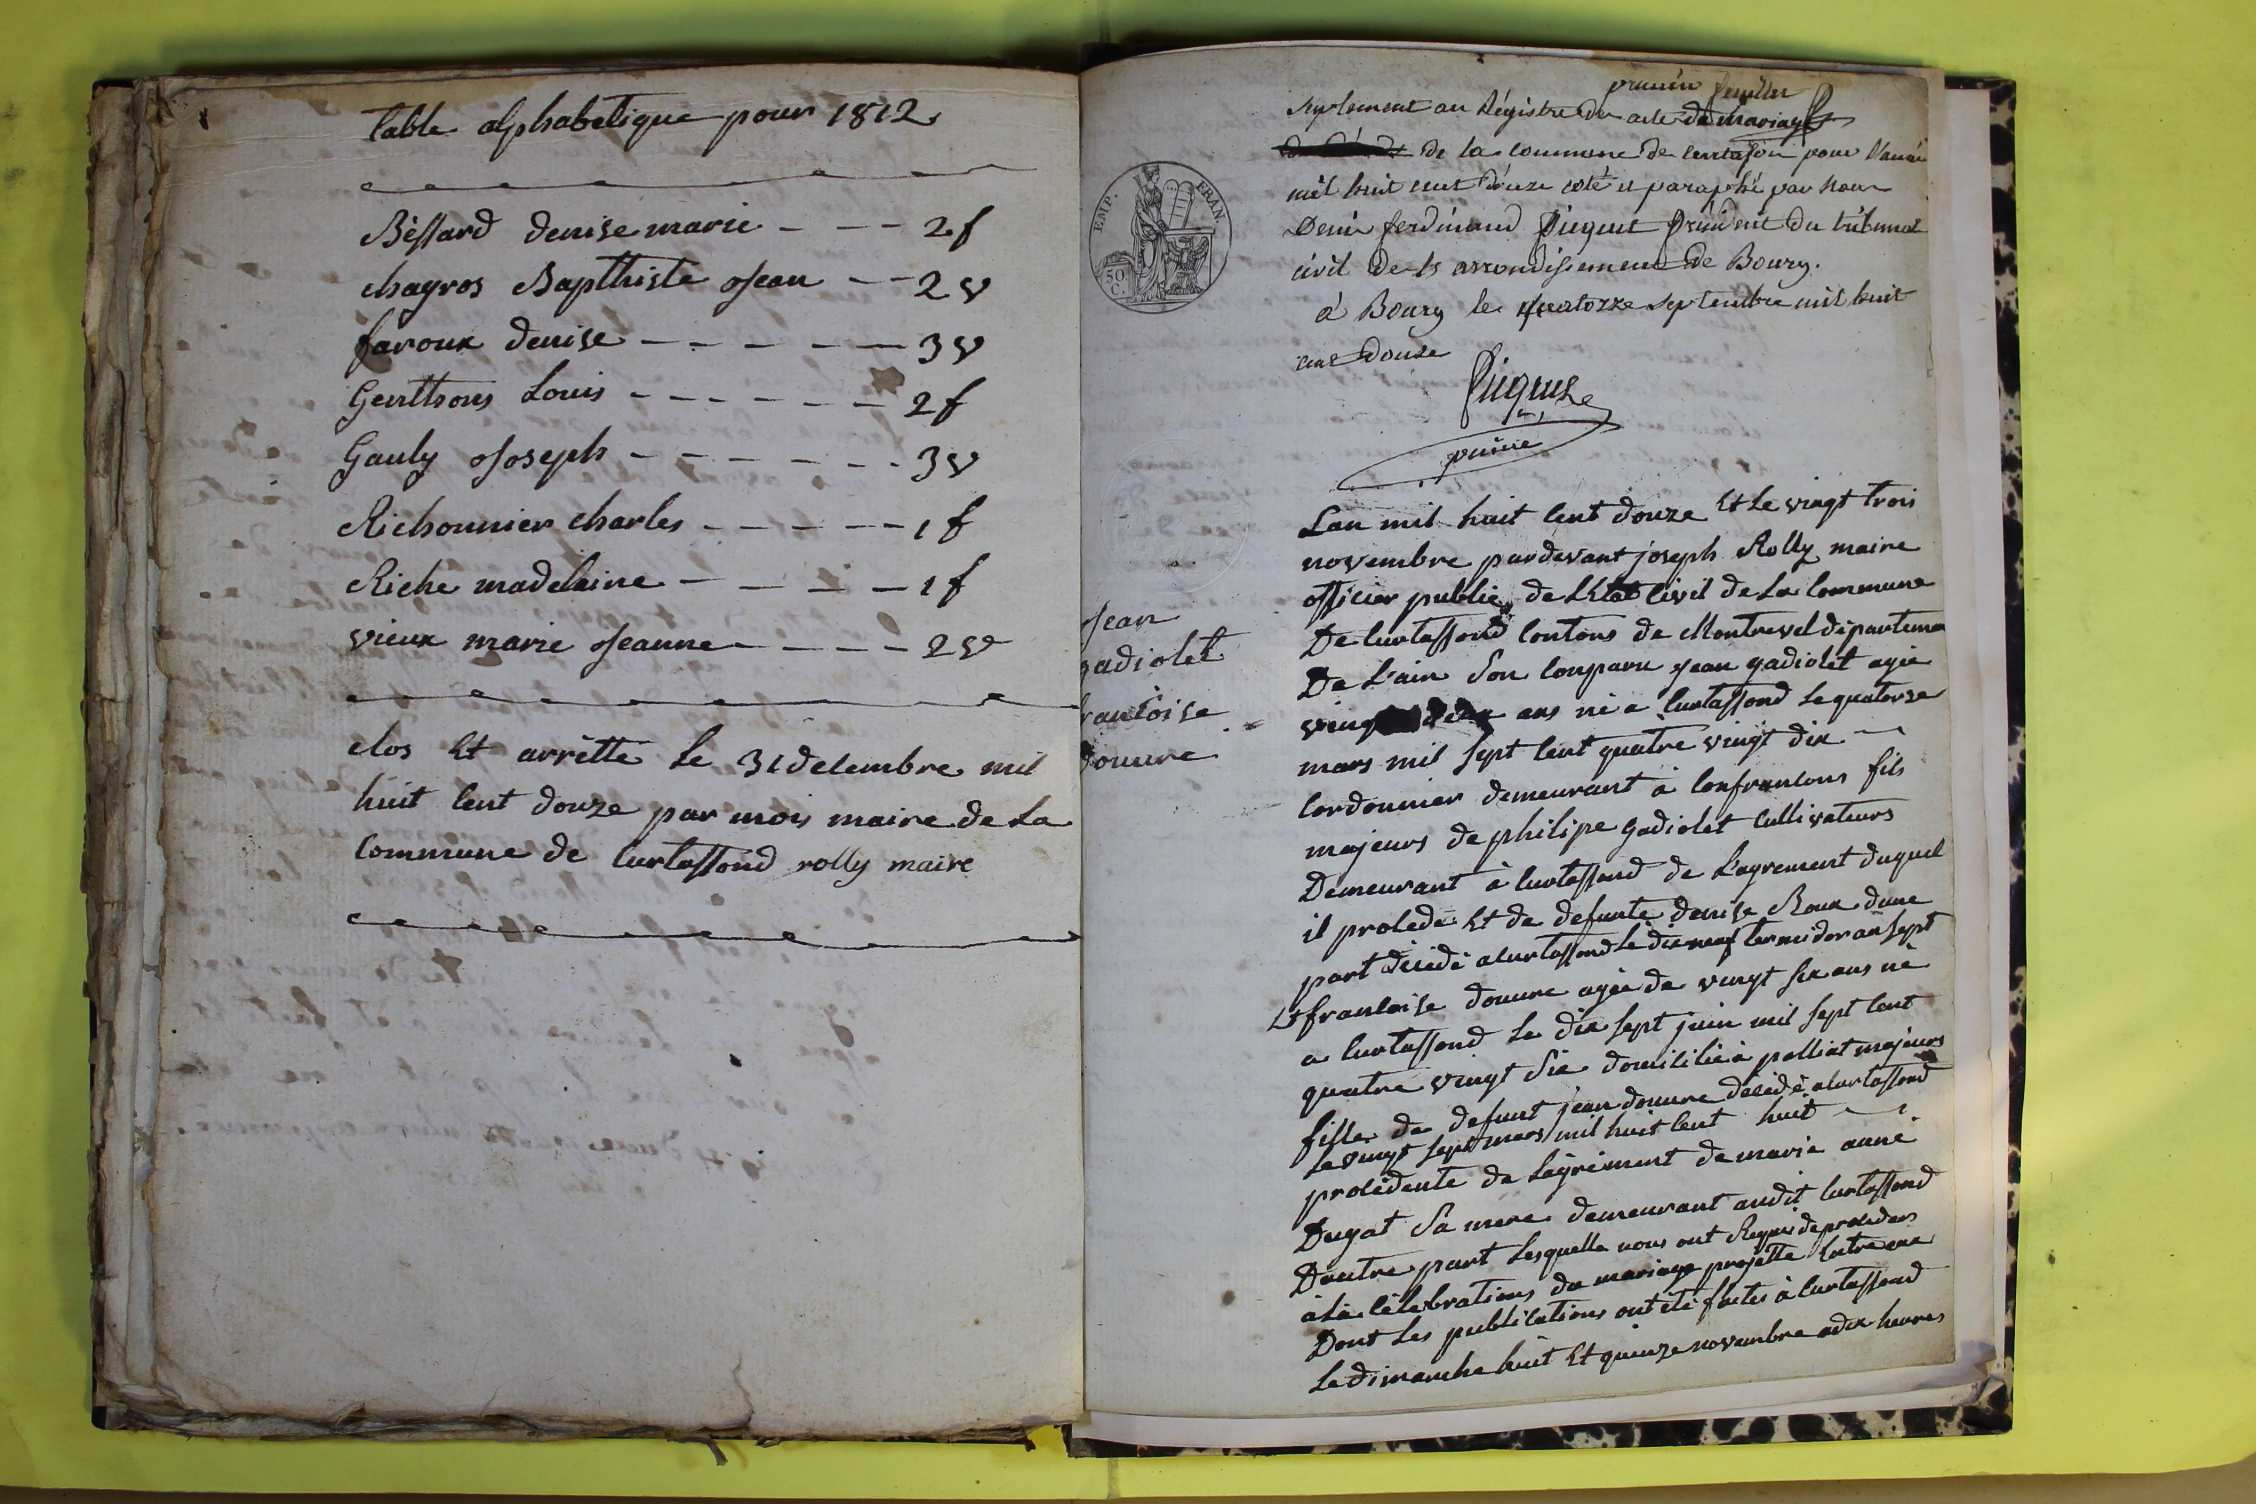 table alphabetique pour 1812
Bessard denise marie - - - 2 f
chagros Bapthiste Jean - - 2 v
faroux denise - - - - - 3 v
Genttrons Louis - - - - - - 2 f
Gauly Joseph - - - - - - - 3 v
Richonnier charles - - - - - 1 f
Riche madelaine - - - - 1 f
vieux marie Jeanne - - - - 2 v
clos Et arrètte Le 31 decembre mil
huit Cent douze par mois maire de La
Commune de Curtassond rolly maire
EMP. FRAN.
50
C.
premier feuillet
suplement au Régistre des acte de mariage
de la commune de curtafon pour l'année
mil huit cent douze coté et paraphé par nous
Denis ferdinand Piquet Président du tribunal
civil de l'arrondissement de Bourg.
a Bourg le quatorze septembre mil huit
cent Douze
Piquet
Jean
gadiolet
francoise
Douvre
Lan mil huit Cent douze Et Le vingt trois
novembre pardevant joseph Rolly maire
officier public de LEtat Civil de La Commune
De Curtassond Contons de Montrevel départemen
De L'ain Son Comparu jean gadiolet agée
vingt deux ans né a Curtassond Le quatorze
mars mil Sept Cent quatre vingt dix
Cordonnier demeurant à Confrancons fils
majeurs de philipe gadiolet Cultivateurs
Demeurant à Curtassond de Lagrement duquel
il procede Et de defunte denise Roux dune
part décédé a Curtassond Le dix neuf termidor an Sept
Et francoise douvre agée de vingt Six ans né
a Curtassond Le dix Sept juin mil Sept Cent
quatre vingt Six domiciliée à polliat majeurs
fille de defunt jean douvre décédé a Curtassond
Le vingt Sept mars mil huit Cent huit
procédente de Lagrément de marie anne
Dugat Sa mere demeurant audit Curtassond
Dautre part Lesquelle nous ont Requis de proceders
à La Célebrations du mariage projette Entre eux
Dont Les publications ont été faites à Curtassond
Le dimanche huit Et quinze novembre a dix heures